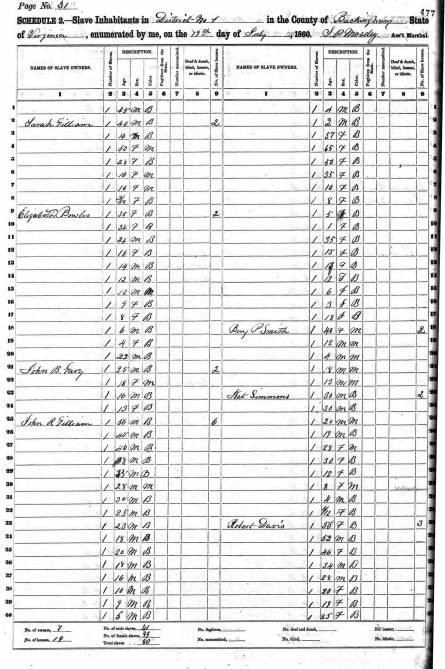 Page No. 31
477
SCHEDULE 2.—Slave Inhabitants in District No 1 in the County of Buckingham State
of Virginia, enumerated by me, on the day of July 1860. Ass't Marshal.
NAMES OF SLAVE OWNERS. Number of Slaves. DESCRIPTION. Age. Sex. Color. Fugitives from the State. Number manumitted. Deaf & dumb, blind, insane, or idiotic. No. of Slave houses. NAMES OF SLAVE OWNERS. Number of Slaves. DESCRIPTION. Age. Sex. Color. Fugitives from the State. Number manumitted. Deaf & dumb, blind, insane, or idiotic. No. of Slave houses.
1 2 3 4 5 6 7 8 9 1 2 3 4 5 6 7 8 9
1 1 45 M B 1 4 M B 1
2 Sarah Gilliam 1 40 M B 2 1 2 M B 2
3 1 14 M B 1 57 F B 3
4 1 50 F M 1 65 F B 4
5 1 28 F B 1 50 F B 5
6 1 10 F M 1 35 F B 6
7 1 10 F M 1 10 F B 7
8 1 F B 1 8 F B 8
9 Elizabeth Bowles 1 35 F B 2 1 5 F B 9
10 1 F B 1 1 F B 10
11 1 24 M B 1 35 F B 11
12 1 16 F B 1 15 F B 12
13 1 14 M B 1 F B 13
14 1 12 M B 1 12 F B 14
15 1 12 M M 1 6 F B 15
16 1 9 F B 1 3 F B 16
17 1 8 F B 1 18 F B 17
18 1 6 M B Benj P. Smith 1 40 F M 2 18
19 1 4 F B 1 12 M M 19
20 1 22 M B 1 4 M M 20
21 John B. 1 25 M B 2 1 18 M M 21
22 1 18 F M 1 12 M M 22
23 1 16 M B Nat Simmons 1 30 M B 2 23
24 1 13 F B 1 30 M B 24
25 John R Gilliam 1 56 M B 6 1 20 M M 25
26 1 45 M B 1 19 M B 26
27 1 40 M B 1 28 F M 27
28 1 38 M B 1 30 F B 28
29 1 35 M B 1 12 F B 29
30 1 28 M M 1 8 F M 30
31 1 30 M B 1 4 M B 31
32 1 25 M B 1 F B 32
33 1 23 M B Robert Davis 1 55 F B 3 33
34 1 18 M B 1 52 M B 34
35 1 20 M B 1 46 F B 35
36 1 18 M B 1 34 M B 36
37 1 16 M B 1 28 M B 37
38 1 10 M B 1 20 F B 38
39 1 9 M B 1 19 F B 39
40 1 5 M B 1 25 F B 40
No. of owners, 7 No. of male slaves, 41 No. fugitives, No. deaf and dumb, No. insane,
No. of houses, 19 No. of female slaves, 39 No. manumitted, No. blind, No. idiotic,
Total slaves 80